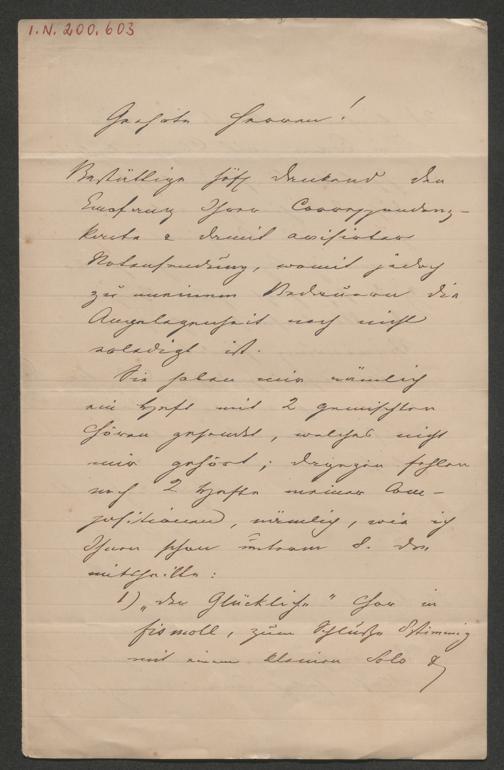 I.N. 200.603
Geehrte Herren!
Bestättige höfl dankend den
Empfang Ihrer Correspondenz-
karte & damit avisirter
Notensendung, womit jedoch
zu meinem Bedauern die
Angelegenheit noch nicht
erledigt ist.
Sie haben mir nämlich
ein Heft mit 2 gemischten
Chören gesendet, welches nicht
mir gehört; dagegen fehlen
noch 2 Hefte meiner Com-
positionen, nämlich, wie ich
Ihnen schon unterm 8. des
mittheilte:
1) „der Glückliche" Chor in
fis moll, zum Schluße 8stimmig
mit einem kleinen Solo &